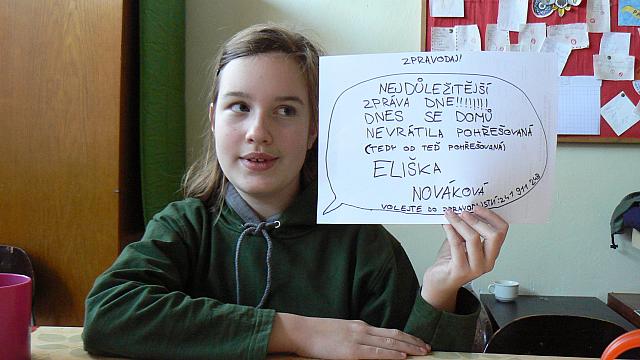 ZPRAVODAJ!
NEJDŮLEŽITĚJŠÍ
ZPRÁVA DNE!!!!!!!!
DNES SE DOMŮ
NEVRÁTILA POHŘEŠOVANÁ
(TEDY OD TEĎ POHŘEŠOVANÁ)
ELIŠKA
NOVÁKOVÁ
VOLEJTE DO ZPRAVODAJSTVÍ: